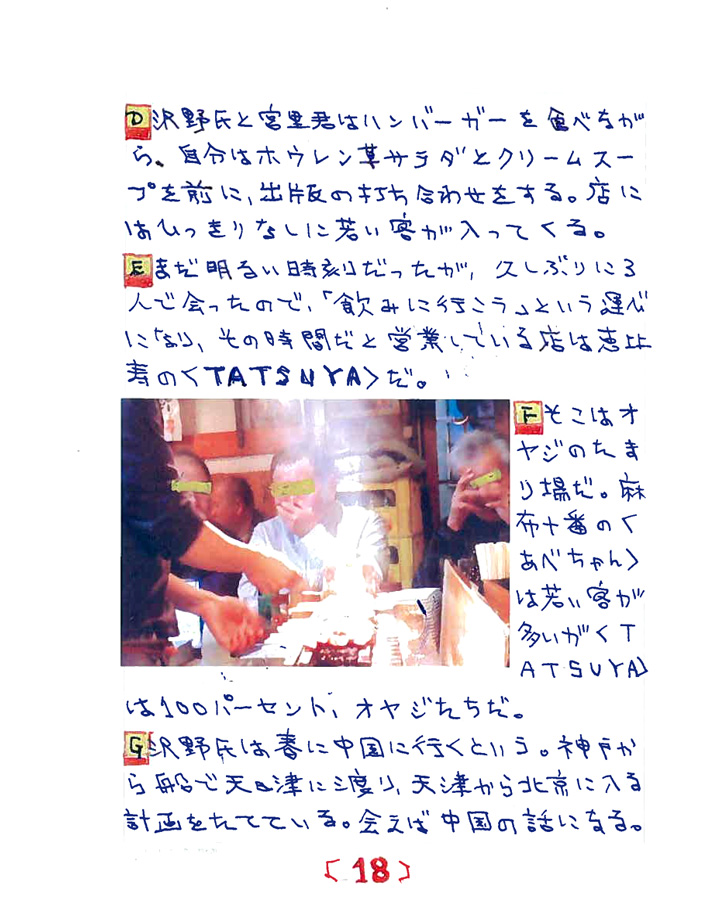 D 沢野氏と宮里君はハンバーガーを食べなが
ら、自分はホウレン草サラダとクリームスー
プを前に、出版の打ち合わせをする。店に
はひっきりなしに若い客が入ってくる。
E まだ明るい時刻だったが、久しぶりに3
人で会ったので、「飲みに行こう」という運び
になり、その時間だと営業している店は恵比
寿の〈TATSUYA〉だ。
F そこはオ
ヤジのたま
り場だ。麻
布十番の〈
あべちゃん〉
は若い客が
多いが〈T
ATSUYA〉
は100パーセント、オヤジたちだ。
G 沢野氏は春に中国に行くという。神戸か
ら船で天津に渡り、天津から北京に入る
計画をたてている。会えば中国の話になる。
〔18〕